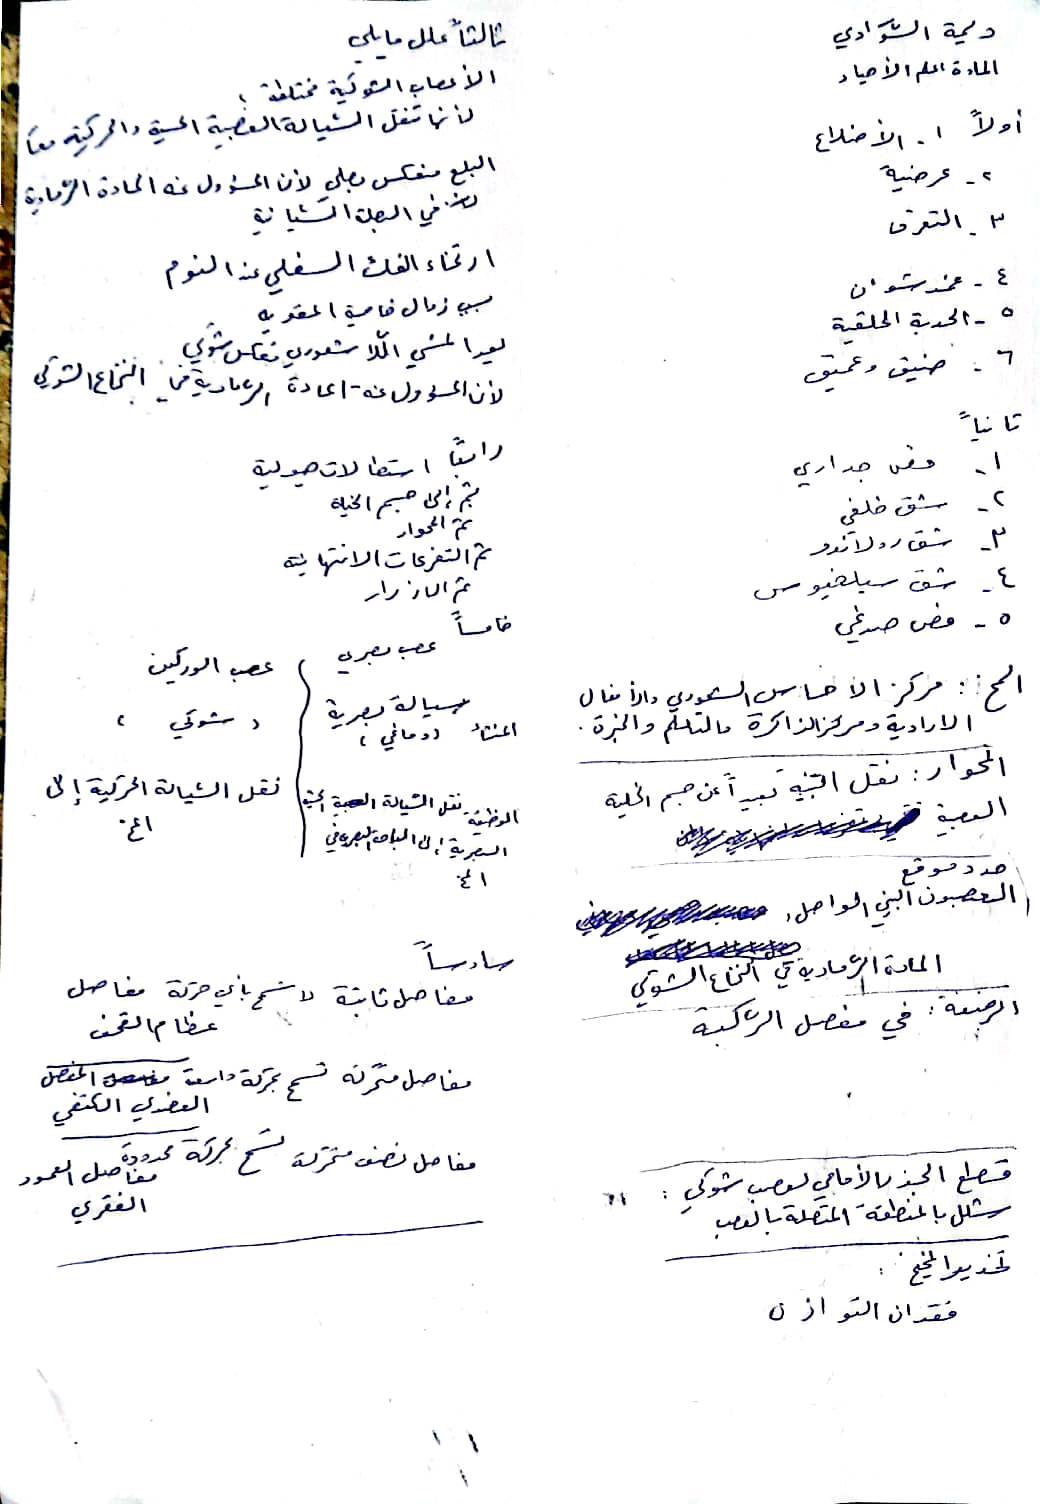 ديمة الشوادي
المادة: علم الأحياء
أولاً ١. الأضلاع
٢- عرضية
٣- التعرق
٤- غمد شوان
٥- الحدبة الحلقية
٦- ضيق وعميق
ثانياً
١- فص جداري
٢- شق خلفي
٣- شق رولاندو
٤- شق سيلفيوس
٥- فص صدغي
المخ: مركز الاحساس الشعوري والأفعال
الارادية ومركز الذاكرة والتعلم والخبرة.
المحوار: نقل التنبيه بعيداً عن جسم الخلية
العصبية
حدد موقع
العصبون البيني الواصل:
المادة الرمادية في النخاع الشوكي
الرضفة: في مفصل الركبة
قطع الجذر الأمامي لعصب شوكي:
شلل بالمنطقة المتصلة بالعصب
تخدير المخيخ:
فقدان التوازن
ثالثاً علل مايلي
الأعصاب الشوكية مختلطة:
لأنها تنقل السيالة العصبية الحسية والحركية معاً
البلع منعكس بصلي لأن المسؤول عنه المادة الرمادية
في البصلة السيسائية
ارتخاء الفك السفلي عند النوم
بسبب زوال خاصية المقوية
يعد المشي اللاشعوري منعكس شوكي
لأن المسؤول عنه المادة الرمادية في النخاع الشوكي
رابعاً استطالات هيولية
ثم إلى جسم الخلية
ثم المحوار
ثم التفرعات الانتهائية
ثم الازرار
خامساً
عصب بصري عصب الوركين
سيالة بصرية
المنشأ (دماغي) (شوكي)
الوظيفة نقل السيالة العصبية الحسية نقل السيالة الحركية إلى
البصرية إلى الباحة البصرية في المخ
المخ
سادساً
مفاصل ثابتة لا تسمح بأي حركة مفاصل
عظام القحف
مفاصل متحركة تسمح بحركة واسعة المفصل
العضدي الكتفي
مفاصل نصف متحركة تسمح بحركة محدودة
مفاصل العمود
الفقري